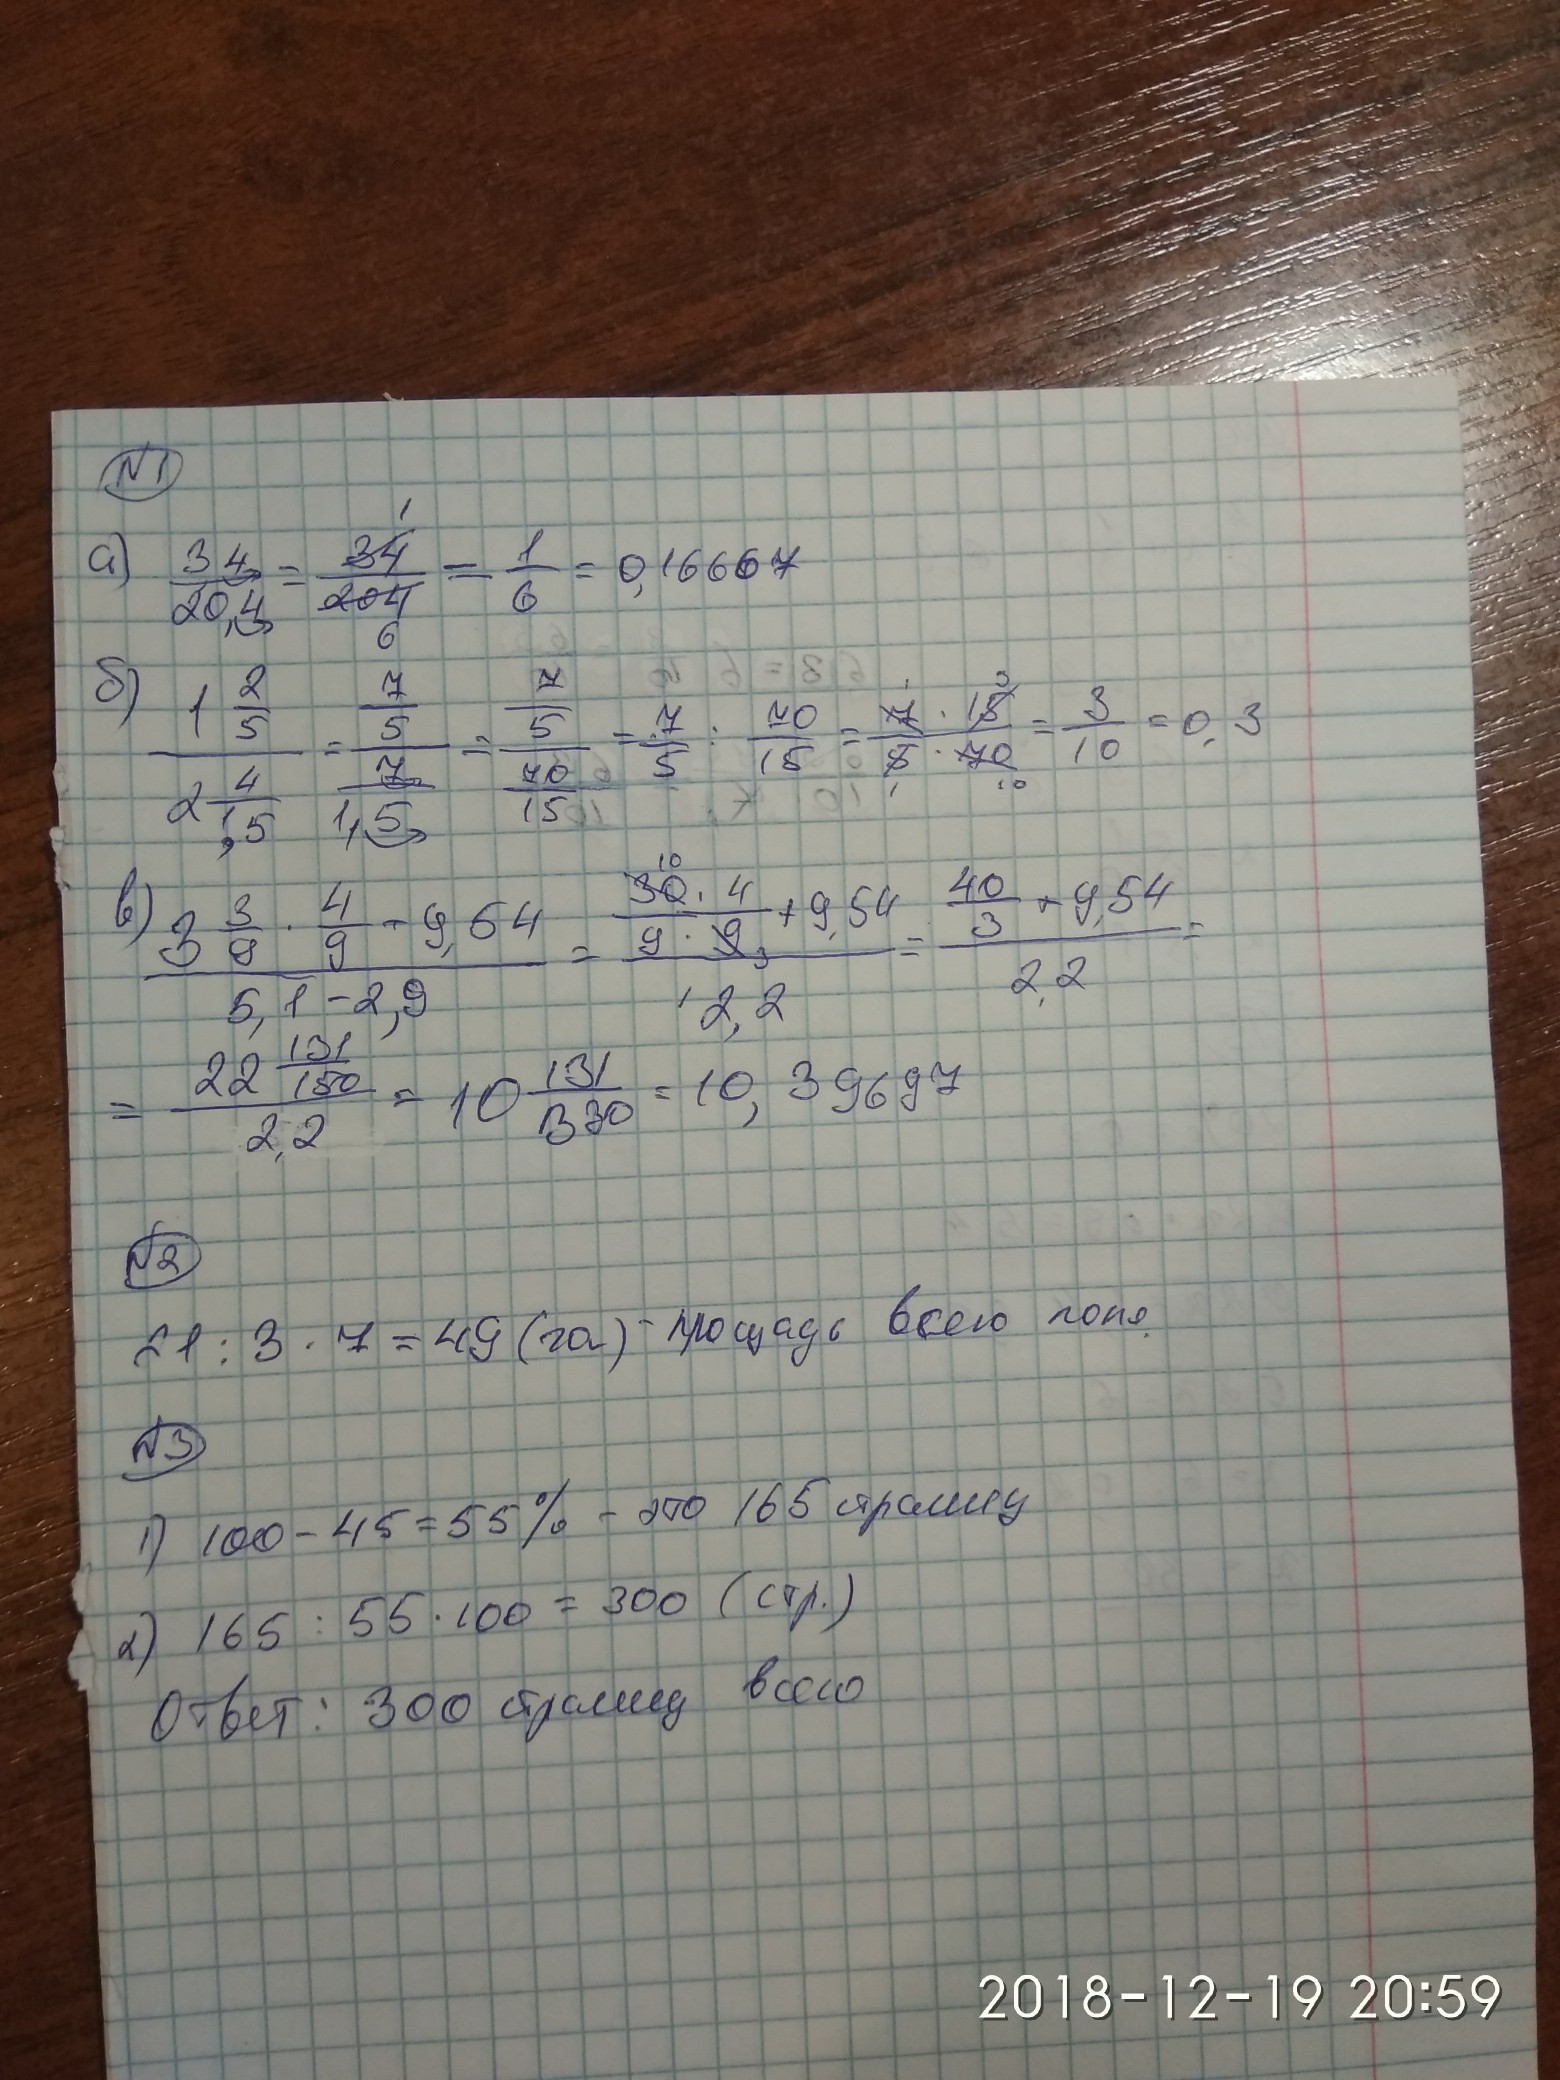 №1
а) 34/20,4 = 34/204 = 1/6 = 0,16667
б) 1 2/5 / 2 4/1,5 = 7/5 / 7/1,5 = 7/5 / 70/15 = 7/5 : 70/15 = 7·15/5·70 = 3/10 = 0,3
в) 3 3/9 · 4/9 + 9,54 / 5,1-2,9 = 30·4/9·9 + 9,54 / 2,2 = 40/3 + 9,54 / 2,2 =
= 22 131/150 / 2,2 = 10 131/330 = 10,39697
№2
21 : 3 · 7 = 49 (га) - площадь всего поля.
№3
1) 100 - 45 = 55% - это 165 страниц
2) 165 : 55 · 100 = 300 (стр.)
Ответ: 300 страниц всего
2018-12-19 20:59